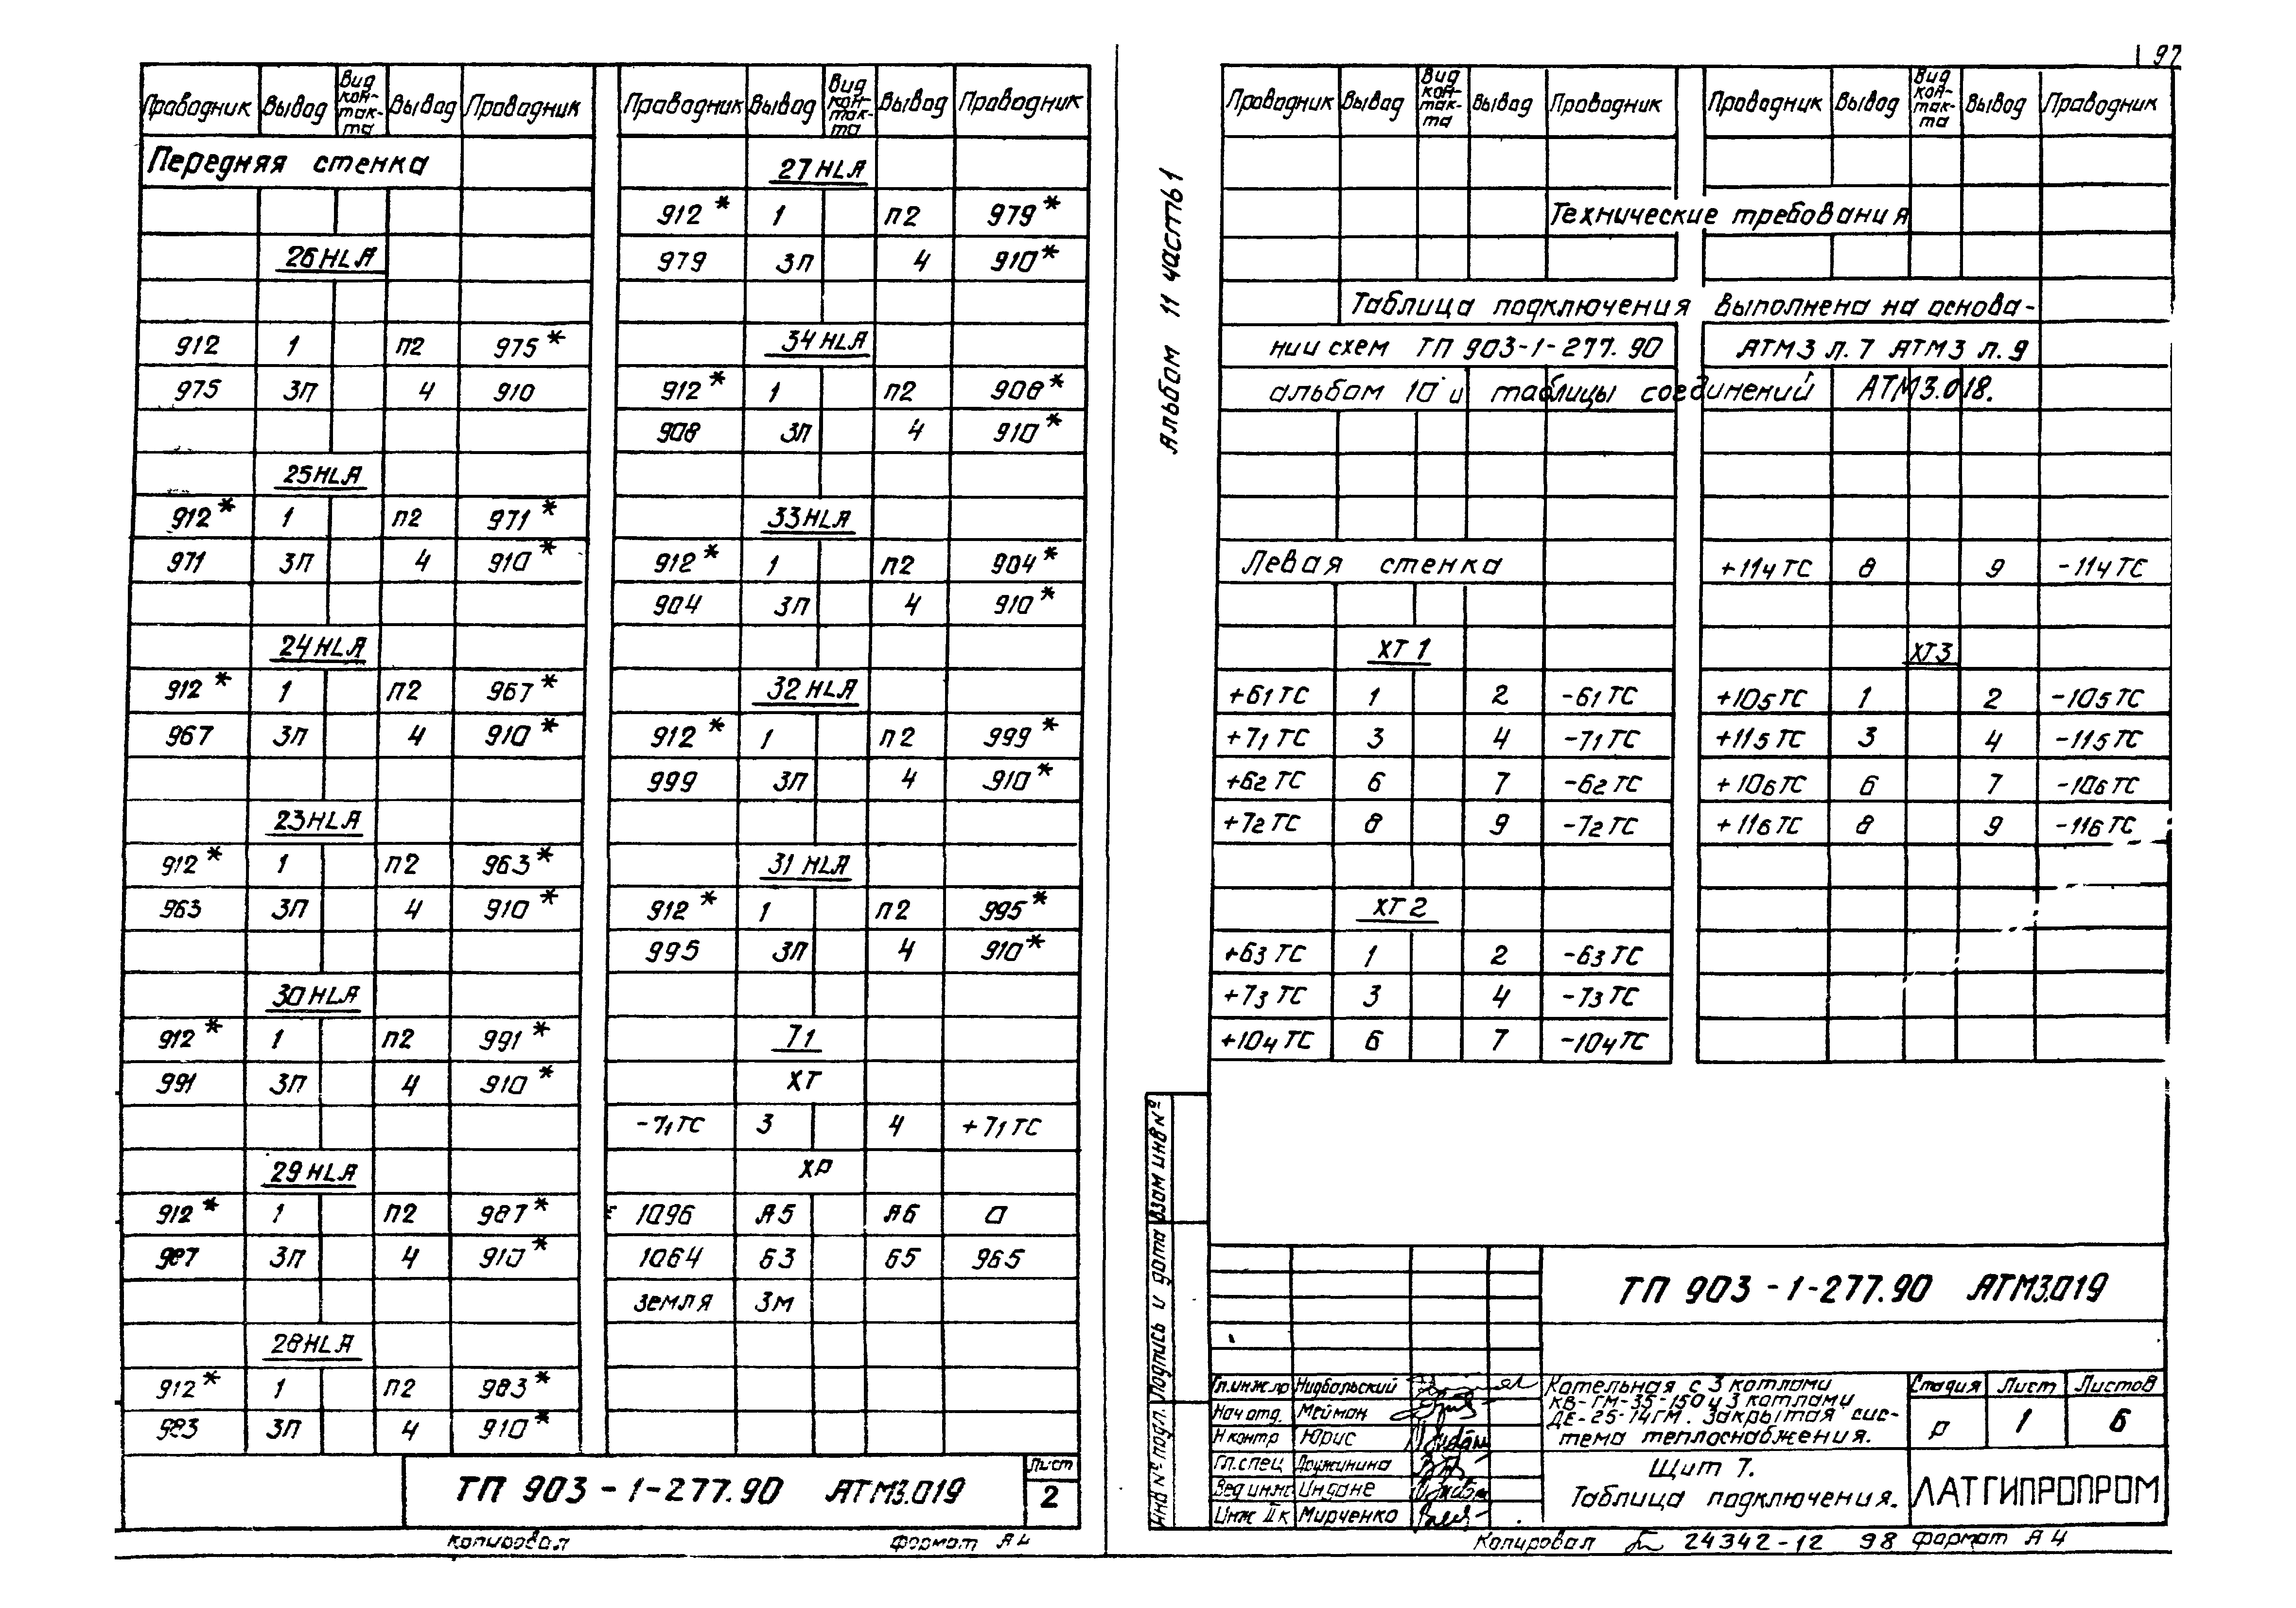 97
Проводник Вывод Вид кон-так-та Вывод Проводник
Передняя стенка
26HLA
912 1 п2 975*
975 3п 4 910
25HLA
912* 1 п2 971*
971 3п 4 910*
24HLA
912* 1 п2 967*
967 3п 4 910*
23HLA
912* 1 п2 963*
963 3п 4 910*
30HLA
912* 1 п2 991*
991 3п 4 910*
29HLA
912* 1 п2 987*
987 3п 4 910*
28HLA
912* 1 п2 983*
983 3п 4 910*
Проводник Вывод Вид кон-так-та Вывод Проводник
27HLA
912* 1 п2 979*
979 3п 4 910*
34HLA
912* 1 п2 908*
908 3п 4 910*
33HLA
912* 1 п2 904*
904 3п 4 910*
32HLA
912* 1 п2 999*
999 3п 4 910*
31HLA
912* 1 п2 995*
995 3п 4 910*
71
ХТ
-71ТС 3 4 +71ТС
ХР
1096 А5 А6 0
1064 Б3 Б5 965
земля 3м
ТП 903-1-277.90 АТМ3.019
Лист
2
Копировал формат А4
Альбом 11 часть 1
Проводник Вывод Вид кон-так-та Вывод Проводник
Проводник Вывод Вид кон-так-та Вывод Проводник
Технические требования
Таблица подключения выполнена на основа-
нии схем ТП 903-1-277.90 АТМ3 л.7 АТМ3 л.9
альбом 10 и таблицы соединений АТМ3.018.
Левая стенка
ХТ1
+61ТС 1 2 -61ТС
+71ТС 3 4 -71ТС
+62ТС 6 7 -62ТС
+72ТС 8 9 -72ТС
ХТ2
+63ТС 1 2 -63ТС
+73ТС 3 4 -73ТС
+104ТС 6 7 -104ТС
+114ТС 8 9 -114ТС
ХТ3
+105ТС 1 2 -105ТС
+115ТС 3 4 -115ТС
+106ТС 6 7 -106ТС
+116ТС 8 9 -116ТС
Взам инв №
Подпись и дата
Инв № подл.
ТП 903-1-277.90 АТМ3.019
Гл.инж.пр Нидбальский
Нач отд. Мейман
Н контр Юрис
Гл.спец Дружинина
Вед инж Индане
Инж IIк Мирченко
Котельная с 3 котлами
КВ-ГМ-35-150 и 3 котлами
ДЕ-25-14ГМ. Закрытая сис-
тема теплоснабжения.
Щит 7.
Таблица подключения.
Стадия Лист Листов
Р 1 6
ЛАТГИПРОПРОМ
Копировал 24342-12 98 формат А4